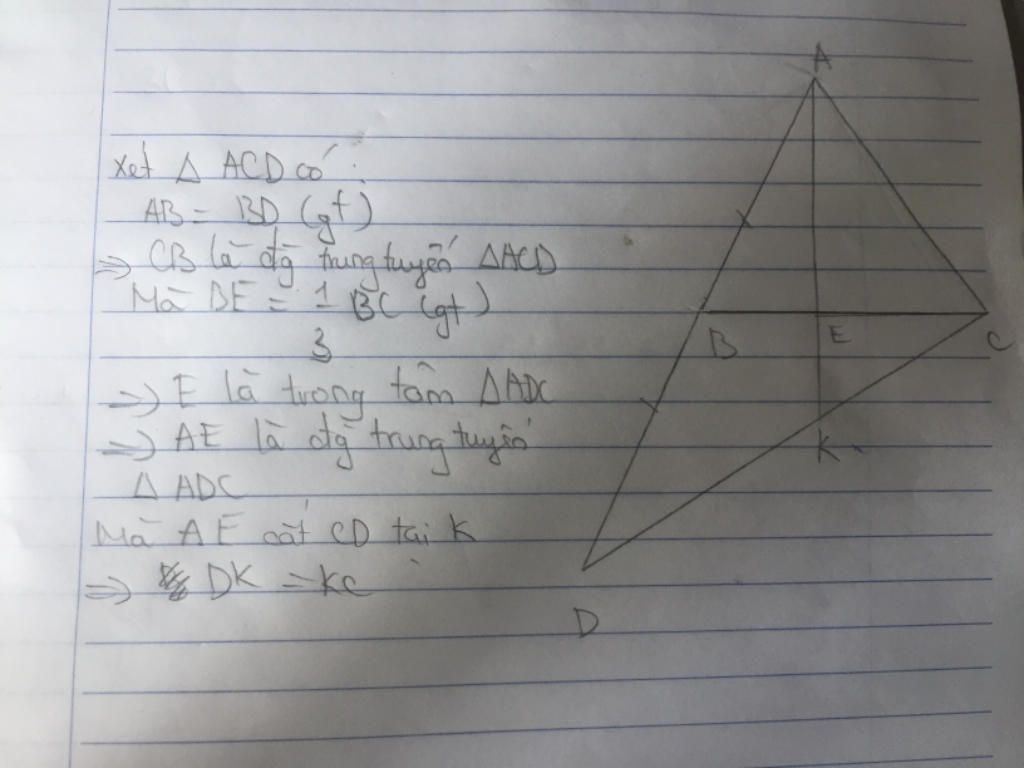 xét Δ ACD có :
AB = BD (gt)
=> CB là đg trung tuyến ΔACD
Mà BE = 1/3 BC (gt)
=> E là trong tâm ΔADC
=> AE là đg trung tuyến
Δ ADC
Mà AE cắt CD tại K
=> DK = KC
A
B
E
C
K
D